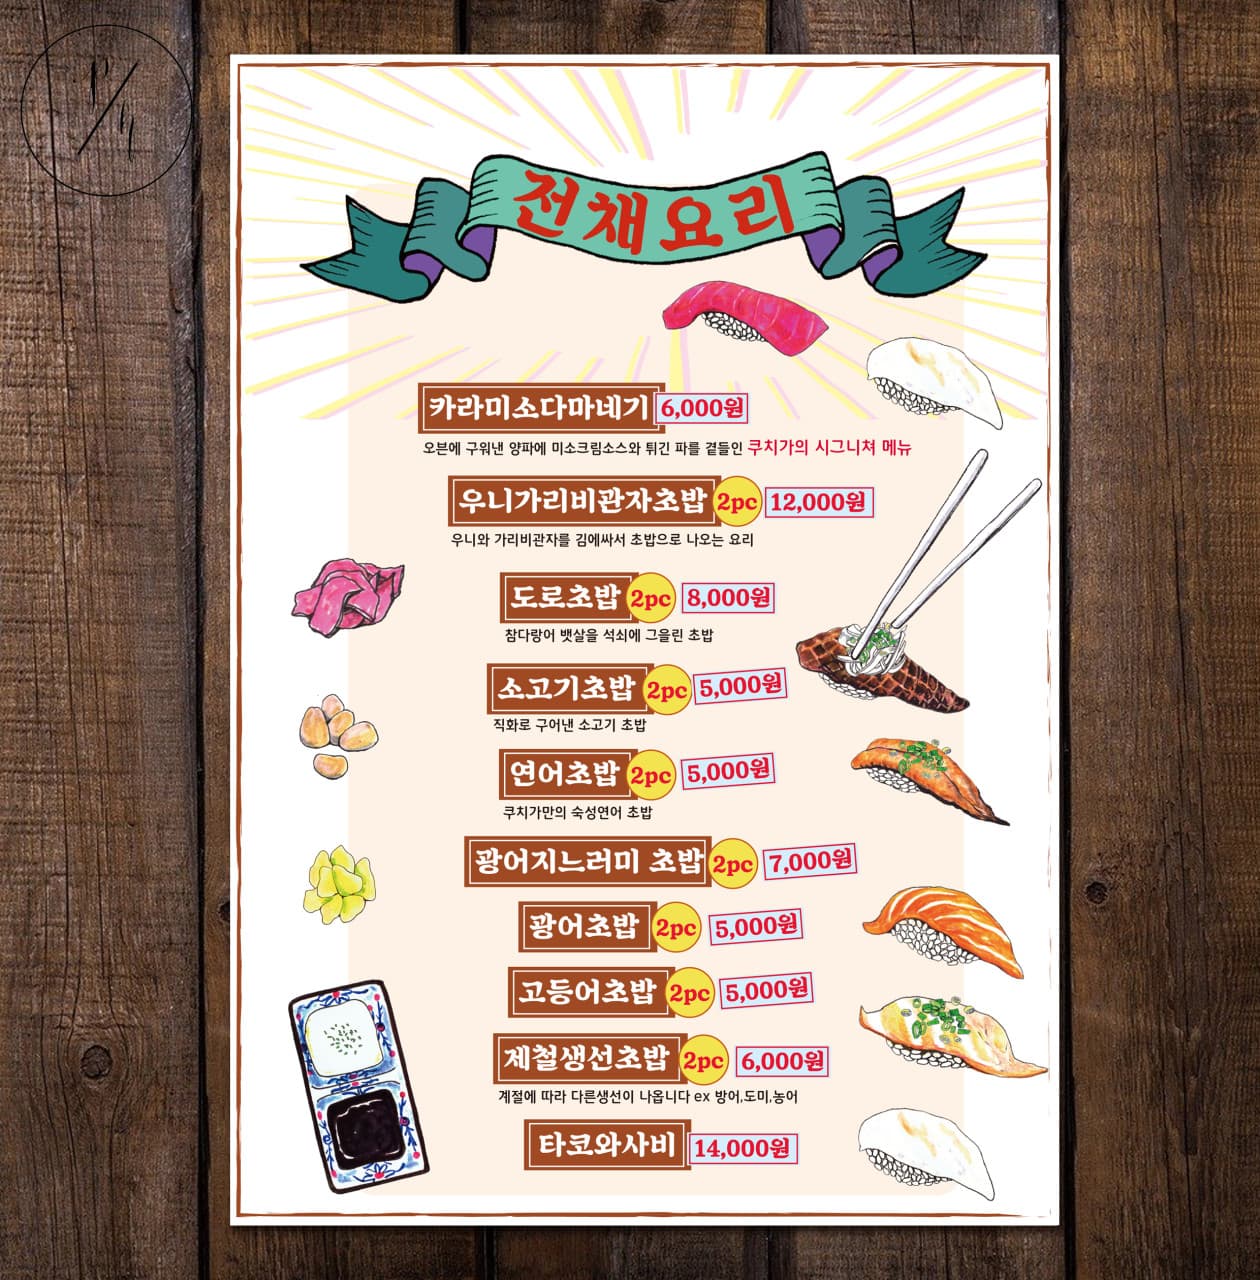 전채요리
카라미소다마네기 6,000원
오븐에 구워낸 양파에 미소크림소스와 튀긴 파를 곁들인 쿠치가의 시그니쳐 메뉴
우니가리비관자초밥 2pc 12,000원
우니와 가리비관자를 김에싸서 초밥으로 나오는 요리
도로초밥 2pc 8,000원
참다랑어 뱃살을 석쇠에 그을린 초밥
소고기초밥 2pc 5,000원
직화로 구어낸 소고기 초밥
연어초밥 2pc 5,000원
쿠치가만의 숙성연어 초밥
광어지느러미 초밥 2pc 7,000원
광어초밥 2pc 5,000원
고등어초밥 2pc 5,000원
제철생선초밥 2pc 6,000원
계절에 따라 다른생선이 나옵니다 ex 방어,도미,농어
타코와사비 14,000원